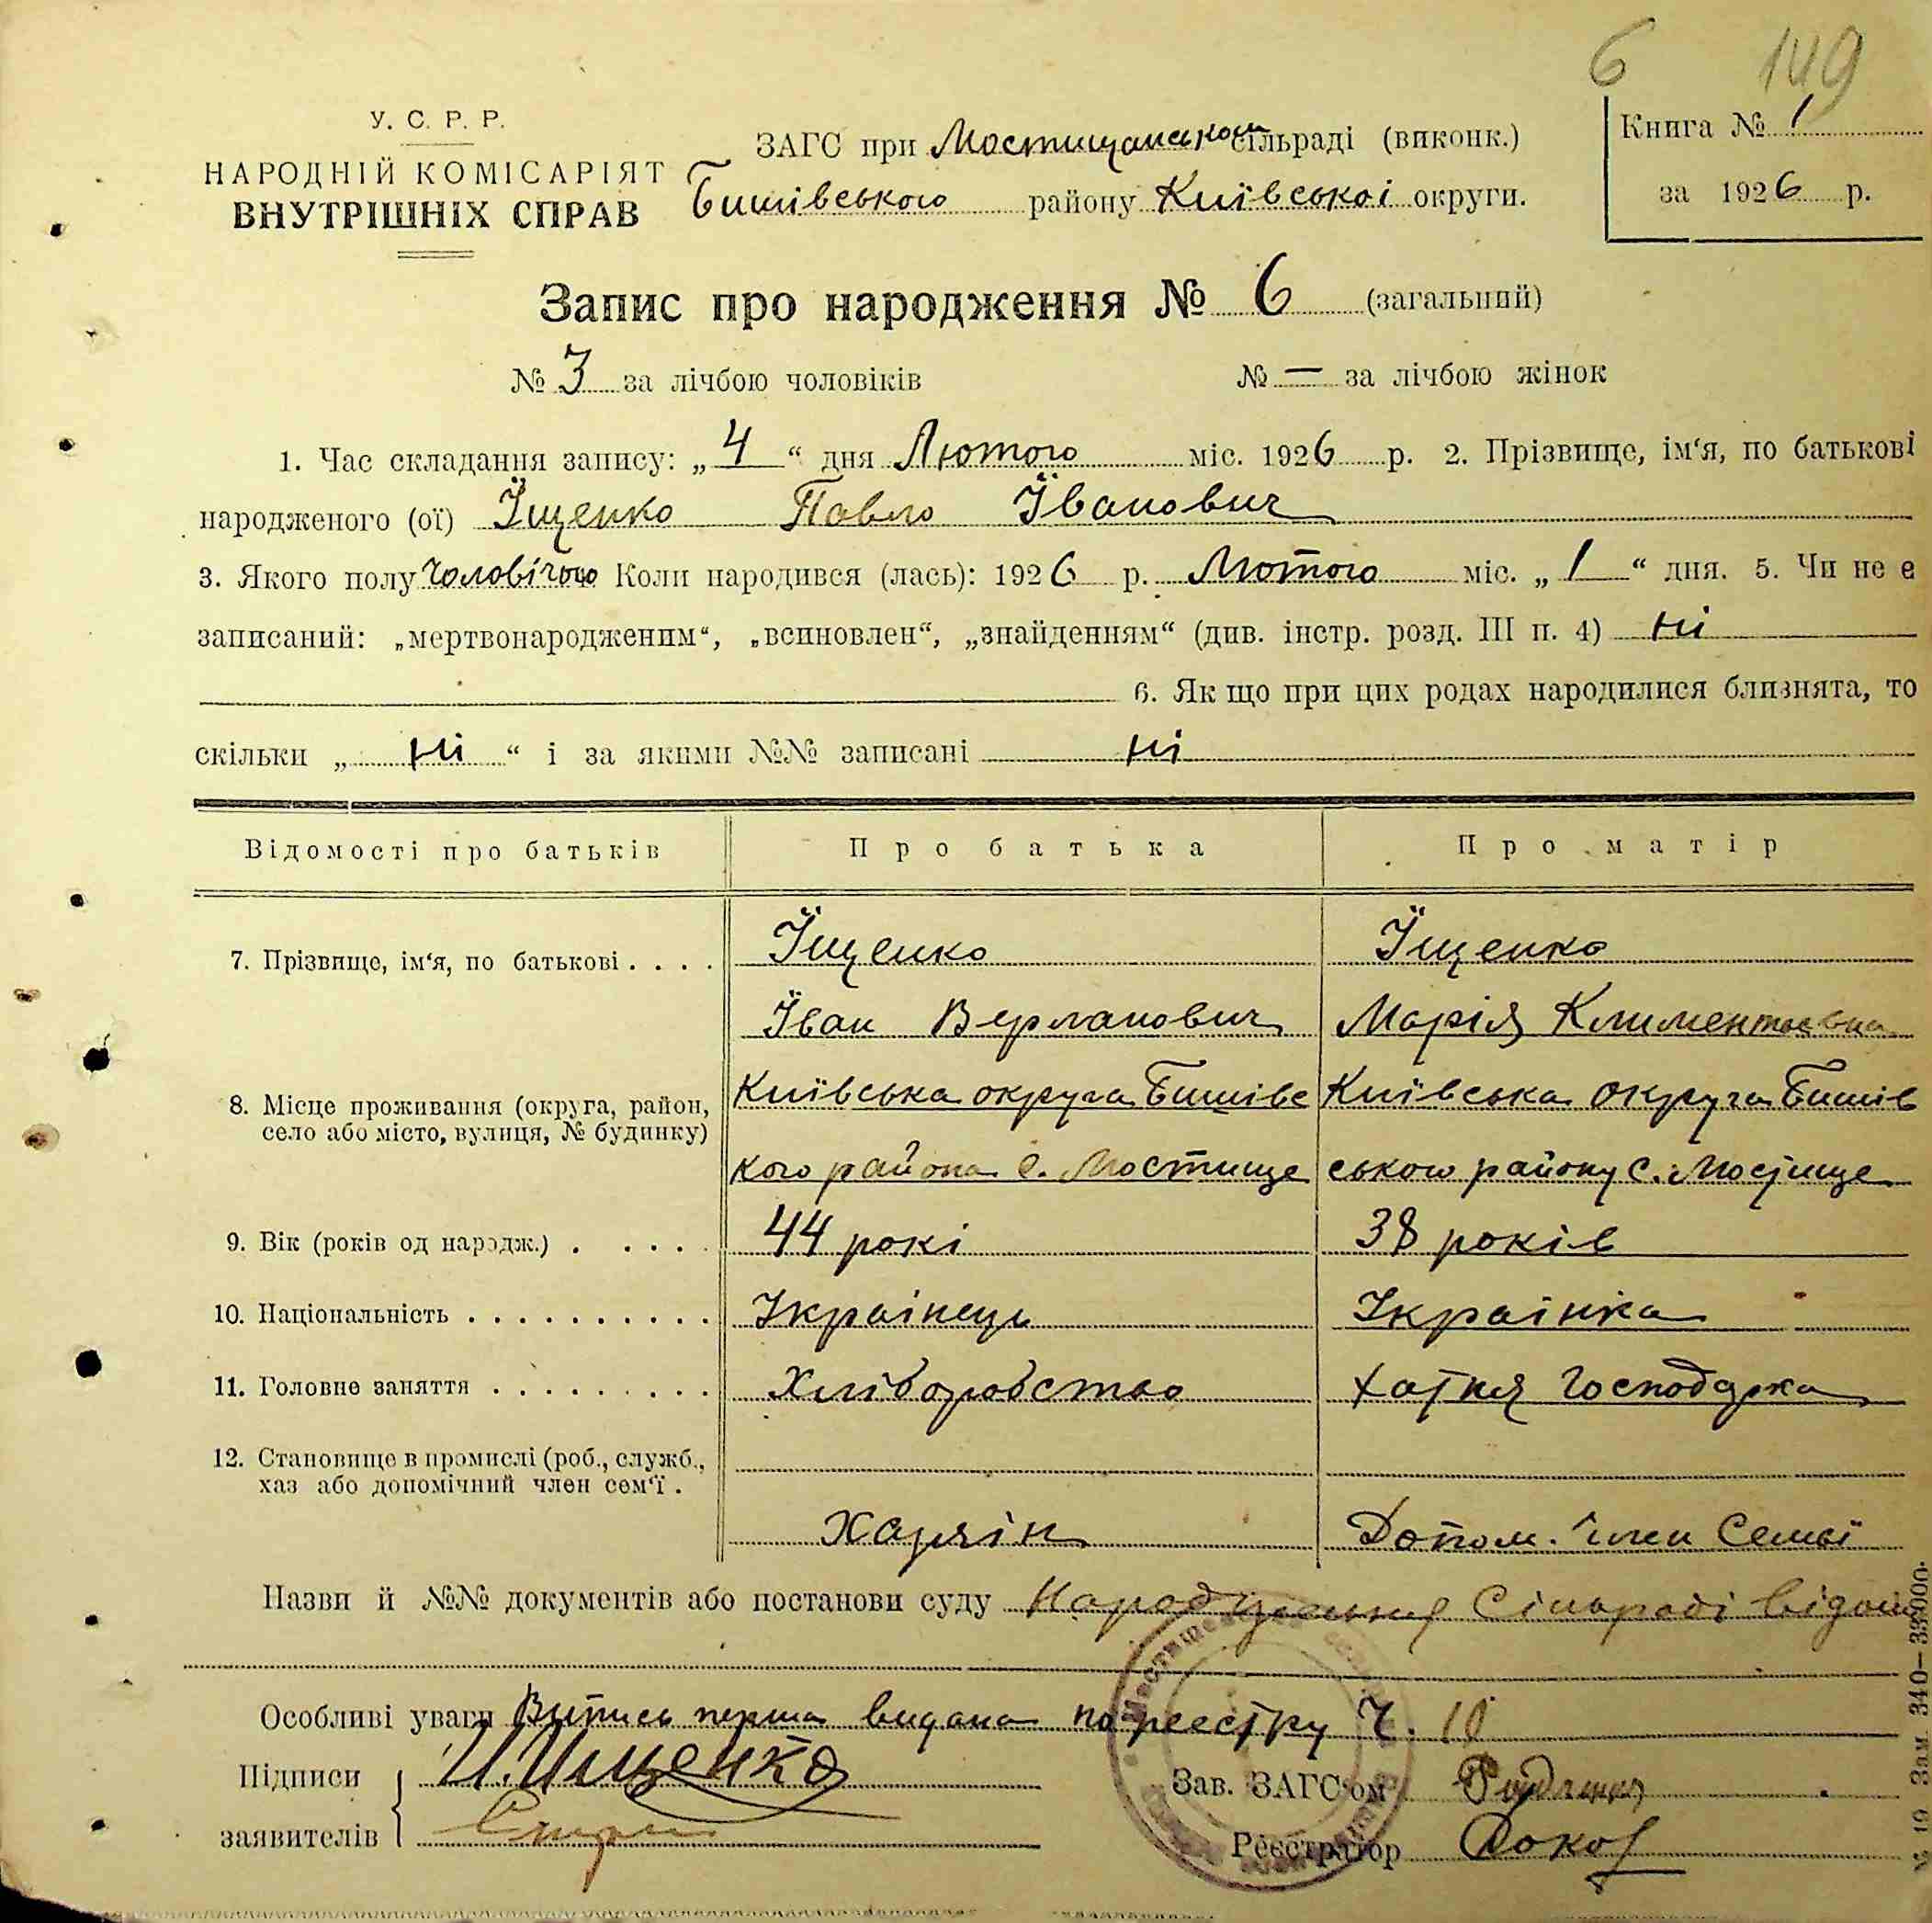 6 149
У. С. Р. Р.
НАРОДНІЙ КОМІСАРІЯТ
ВНУТРІШНІХ СПРАВ
ЗАГС при Мостищанськой сільраді (виконк.)
Бишівського району Київськоі округи.
Книга № 1
за 1926 р.
Запис про народження № 6 (загальний)
№ 3 за лічбою чоловіків № — за лічбою жінок
1. Час складання запису: „4“ дня Лютого міс. 1926 р. 2. Прізвище, ім‘я, по батькові
народженого (ої) Їщенко Павло Їванович
3. Якого полу Чоловічого Коли народився (лась): 1926 р. Лютого міс. „1“ дня. 5. Чи не е
записаний: „мертвонародженим“, „всиновлен“, „знайденням“ (див. інстр. розд. III п. 4) ні
6. Як що при цих родах народилися близнята, то
скільки „ ні “ і за якими №№ записані ні
Відомості про батьків Про батька Про матір
7. Прізвище, ім‘я, по батькові . . . . Їщенко Їщенко
Їван Верланович Марія Климентаевна
8. Місце проживання (округа, район, Київська округа Бишівс Київська округа Бишів
село або місто, вулиця, № будинку)
кого района с. Мостище ського району с. Мостище
9. Вік (років од народж.) . . . . . 44 рокі 38 років
10. Національність . . . . . . . . . . Українець Українка
11. Головне заняття . . . . . . . . . Хліборобство Хатня господарка
12. Становище в промислі (роб., служб.,
хаз або допомічний член сем‘ї .
Хазяін Допом. член Семьї
Назви й №№ документів або постанови суду Народження Сільраді відоме
Особливі уваги Витись перша видана по реєстру Ч. 10
Підписи И. Ищенко Зав. ЗАГС‘ом
заявителів Реєстратор
№ 10 Зам. 340—33000.